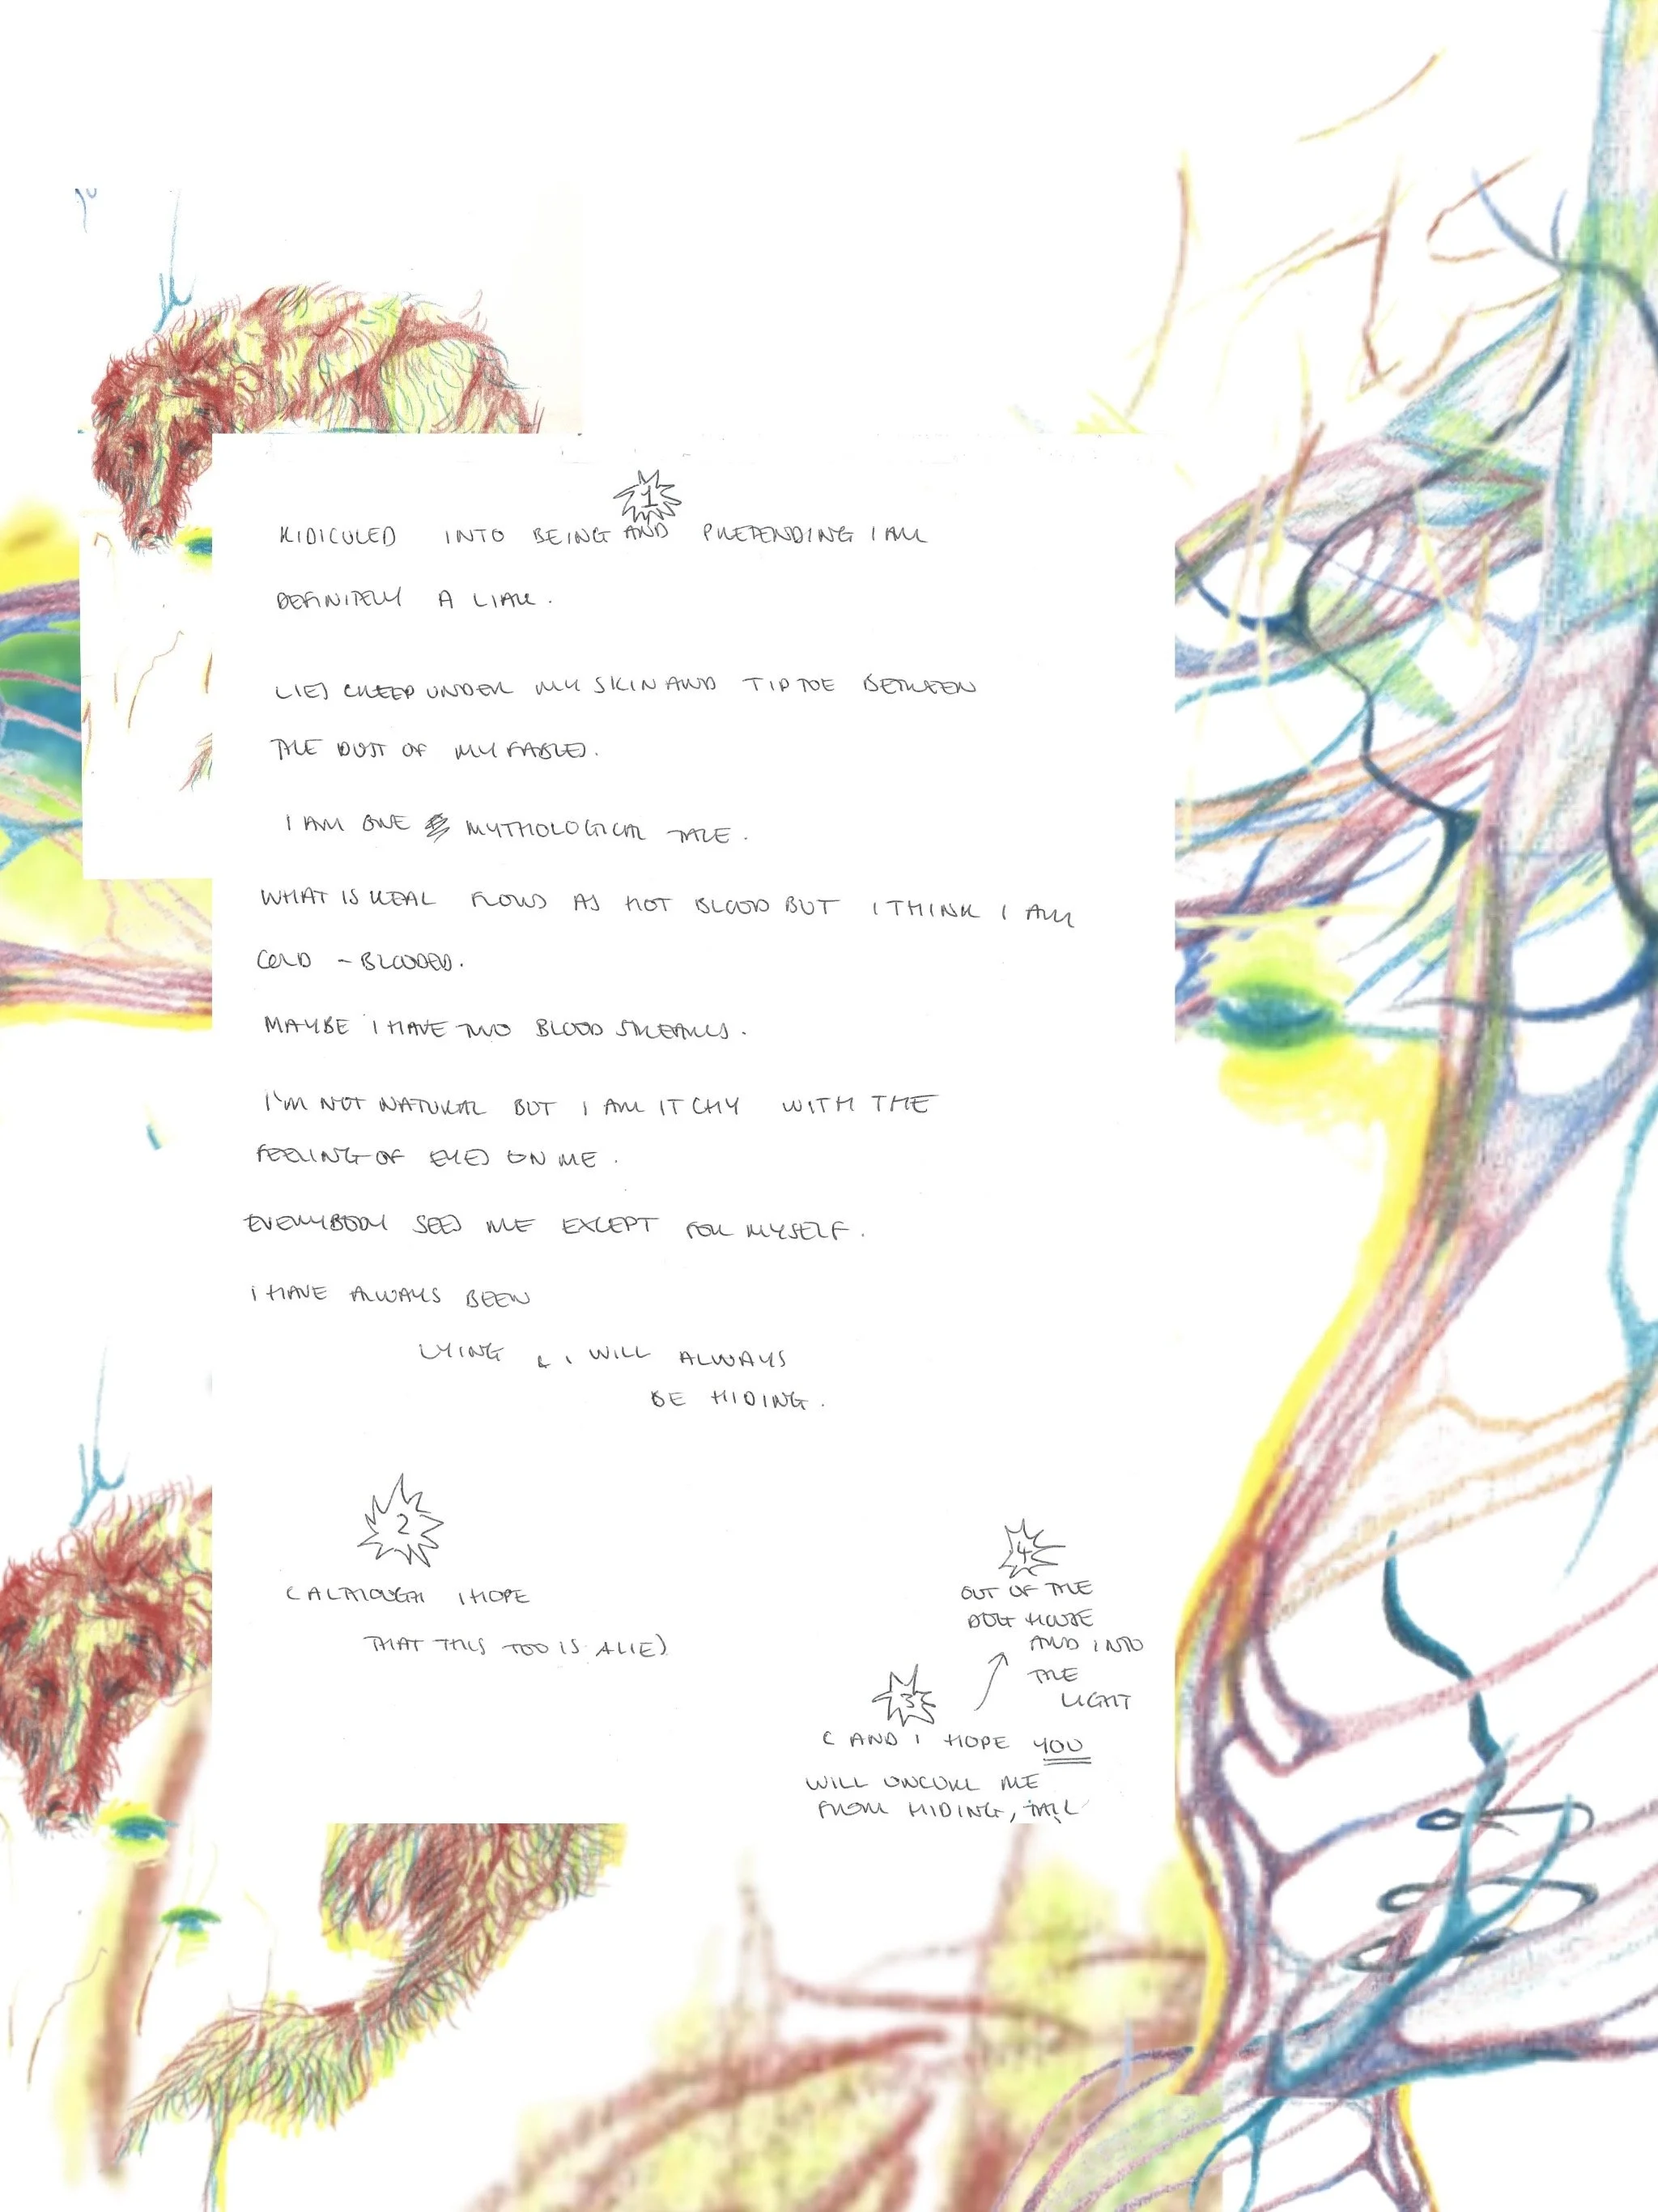 1
RIDICULED INTO BEING AND PRETENDING I AM
DEFINITELY A LIAR.
LIES CREEP UNDER MY SKIN AND TIP TOE BETWEEN
THE DUST OF MY FABLES.
I AM ONE MYTHOLOGICAL TALE.
WHAT IS REAL FLOWS AS HOT BLOOD BUT I THINK I AM
COLD - BLOODED.
MAYBE I HAVE TWO BLOOD STREAMS.
I'M NOT NATURAL BUT I AM ITCHY WITH THE
FEELING OF EYES ON ME.
EVERYBODY SEES ME EXCEPT FOR MYSELF.
I HAVE ALWAYS BEEN
LYING & I WILL ALWAYS
BE HIDING.
2
( ALTHOUGH I HOPE
THAT THIS TOO IS A LIE)
3
( AND I HOPE YOU
WILL UNCURL ME
FROM HIDING, TAIL
4
OUT OF THE
DOG HOUSE
AND INTO
THE
LIGHT